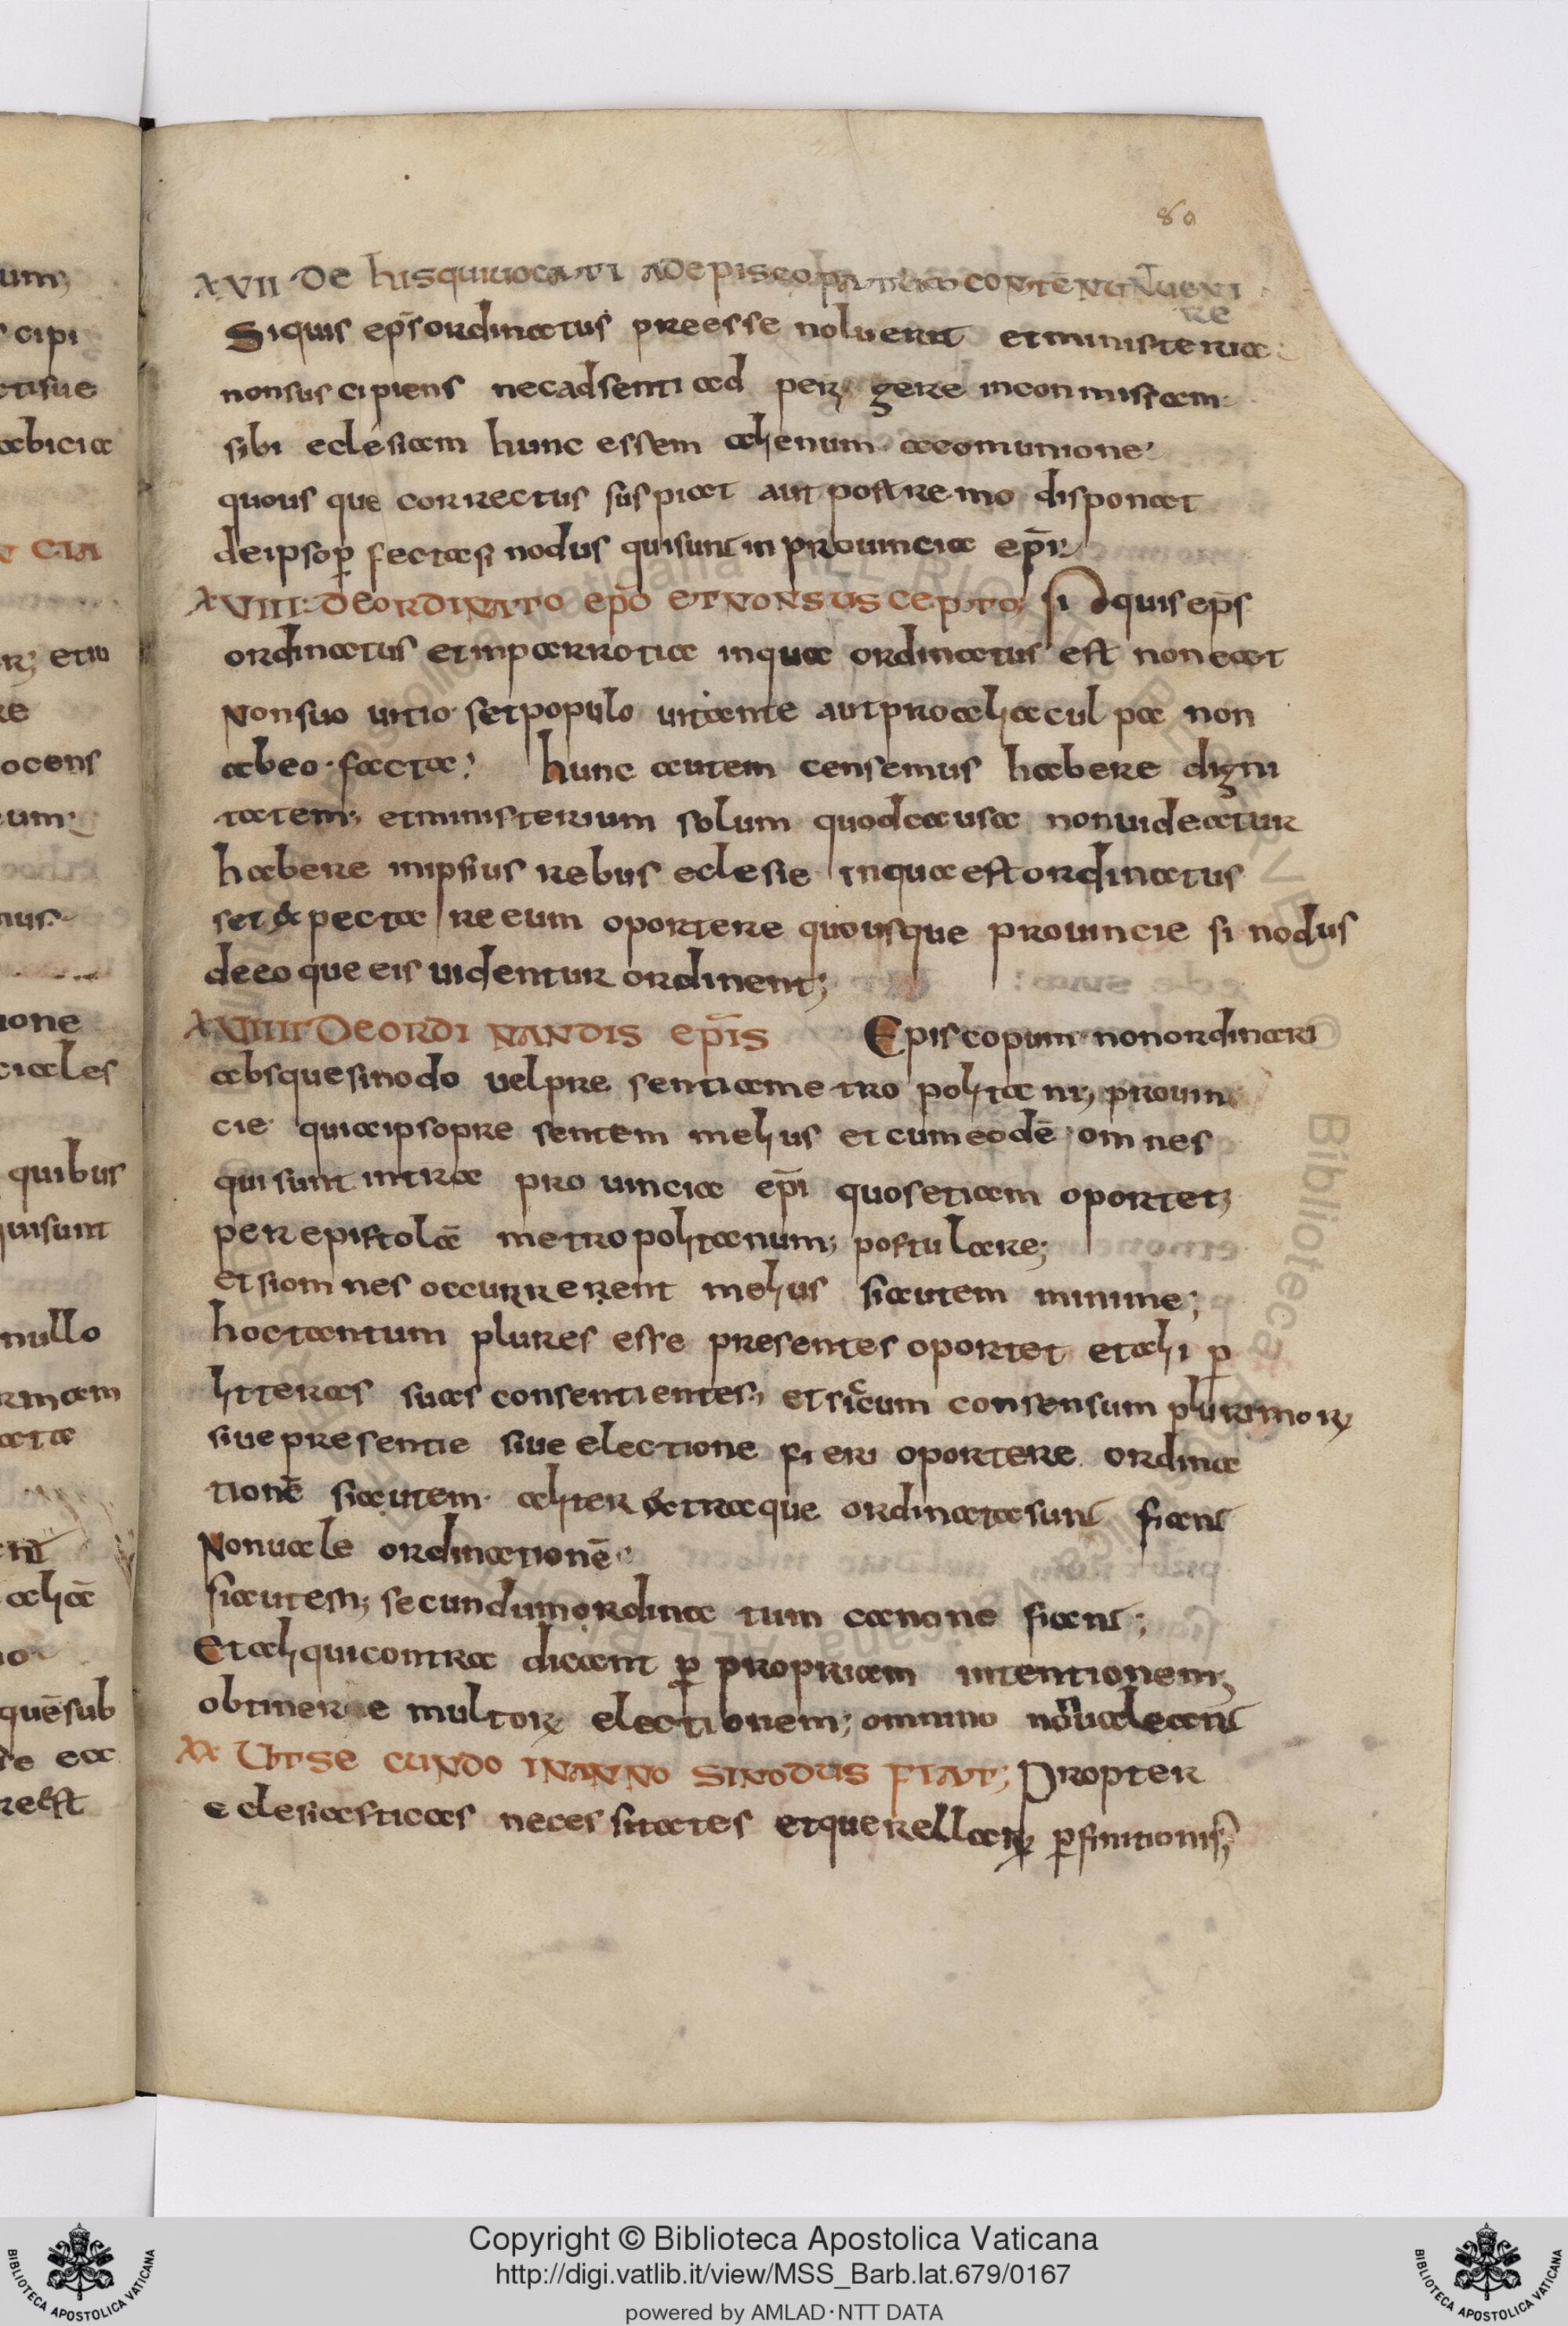 80
XVII De hisquiuocati adepiscopatum contēnūt ueni
re
Siquis ep̄s ordinatus preesse noluerit et ministeria
nonsuscipiens necadsenti ad per gere inconmissam
sibi eclesiam hunc essem alienum acomunione
quous que correctus suspiat aut postremo disponat
deipsop̱ fectasi nodus quisunt in prouincia ep̄i
XVIII De ORDINATO ep̄o ET NON SUSCEPTO; si quis ep̄s
ordinatus et inparrotia inqua ordinatus est non eat
Non suo uitio set populo uitante aut pro alia culpa non
abeo facta; hunc autem censemus habere digni
tatem; et ministerium solum quodcausa nonuideatur
habere inipsius rebus eclesie inqua est ordinatus
set expecta re eum oportere quousque prouincie si nodus
deeo que eis uidentur ordinent;
XVIIII De ORDI NANDIS ep̄is Episcopum nonordinari
absque sinodo uel pre sentia metro politani; prouin
cie quia ipso pre sentem melius et cum eodē omnes
qui sunt intra pro uincia ep̄i quos etiam oportet;
per epistolā metropolitanum; postulare;
et si om nes occurrerent melius si autem minime;
hoc tantum plures esse presentes oportet et alii p̱
litteras suas consentientes; et sic cum consensum plurimoꝝ
siue presentie siue electione fieri oportere ordina
tionē si autem aliter extraque ordinata sunt fiant
Non uale ordinationē
si autem; secundum ordina tum canone fiant;
Et ali qui contra dicant p̱ propriam intentionem;
obtinere multoꝝ electionem; omnino nō ualeant
XX UT SE CUNDO IN ANNO SINODUS FIAT; Propter
eclesiasticas neces sitates et querellaꝝ p̱ finitionis;
Copyright © Biblioteca Apostolica Vaticana
http://digi.vatlib.it/view/MSS_Barb.lat.679/0167
powered by AMLAD·NTT DATA